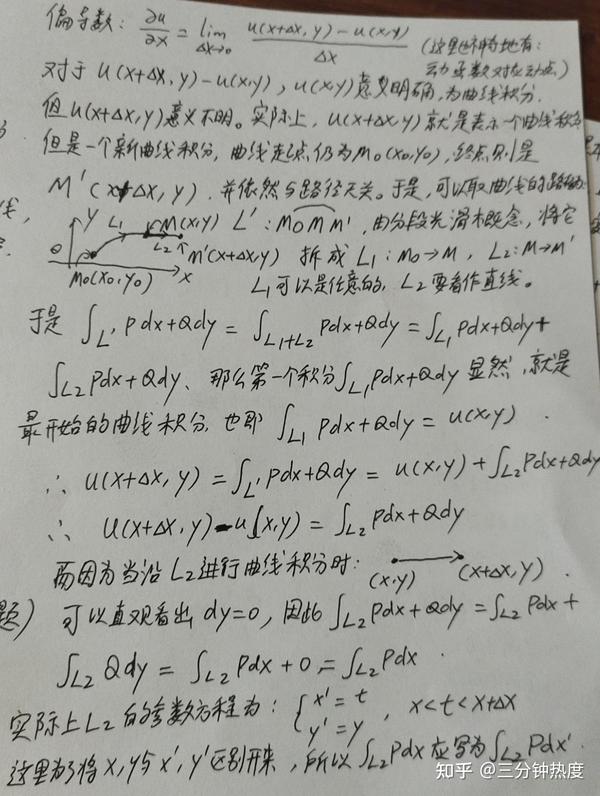 偏导数: ∂u/∂x = lim Δx→0 u(x+Δx, y) − u(x,y) / Δx (这里 特地有:
动函数对应动点)
对于 u(x+Δx, y) − u(x,y), u(x,y)意义明确,为曲线积分.
但 u(x+Δx, y)意义不明。实际上, u(x+Δx, y)就是表示一个曲线积分
但是一个新曲线积分, 曲线起点仍为M₀(x₀,y₀), 终点则是
M'(x+Δx, y). 并依然与路径无关。于是,可以取曲线的路径为:
线,
y L₁ M(x,y) L': M₀MM', 由分段光滑概念, 将它
L₂ ↑ M'(x+Δx,y) 拆成 L₁: M₀→M, L₂: M→M'
0 M₀(x₀,y₀) x L₁可以是任意的, L₂要看作直线。
于是 ∫L' Pdx+Qdy = ∫L₁+L₂ Pdx+Qdy = ∫L₁ Pdx+Qdy+
∫L₂ Pdx+Qdy、那么第一个积分∫L₁ Pdx+Qdy 显然, 就是
最开始的曲线积分, 也即 ∫L₁ Pdx+Qdy = u(x,y) .
∴ u(x+Δx, y) = ∫L' Pdx+Qdy = u(x,y) + ∫L₂ Pdx+Qdy
∴ u(x+Δx, y) − u(x,y) = ∫L₂ Pdx+Qdy
而因为当沿L₂进行曲线积分时: (x,y) → (x+Δx, y) .
题) 可以直观看出 dy=0, 因此 ∫L₂ Pdx+Qdy = ∫L₂ Pdx +
∫L₂ Qdy = ∫L₂ Pdx + 0 = ∫L₂ Pdx .
实际上L₂的参数方程为: { x'=t y'=y , x<t<x+Δx
这里为了将x,y与x',y'区别开来, 所以∫L₂ Pdx应写为∫L₂ Pdx'.
知乎 @三分钟热度